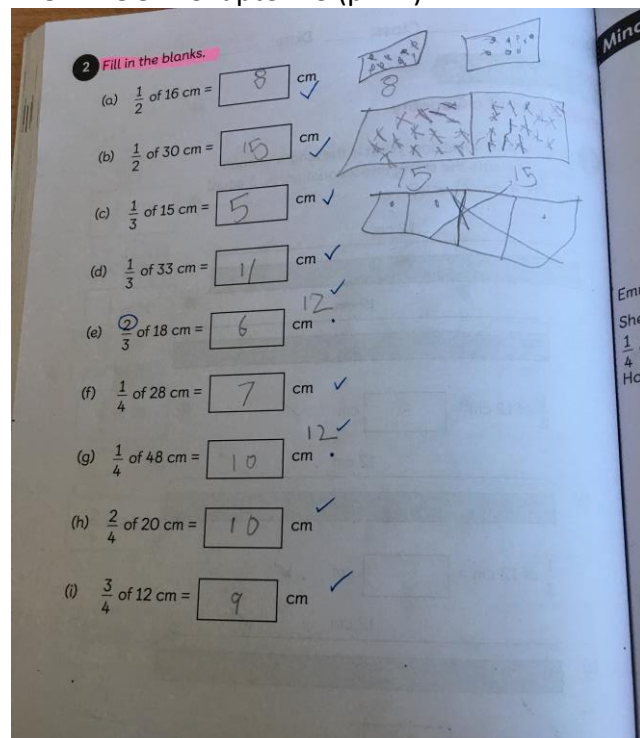 2 Fill in the blanks.
(a) 1/2 of 16 cm = 8 cm ✓
8
(b) 1/2 of 30 cm = 15 cm ✓
15 15
(c) 1/3 of 15 cm = 5 cm ✓
(d) 1/3 of 33 cm = 11 cm ✓
(e) 2/3 of 18 cm = 6 cm . 12 ✓
(f) 1/4 of 28 cm = 7 cm ✓
(g) 1/4 of 48 cm = 10 cm . 12 ✓
(h) 2/4 of 20 cm = 10 cm ✓
(i) 3/4 of 12 cm = 9 cm ✓
1/4